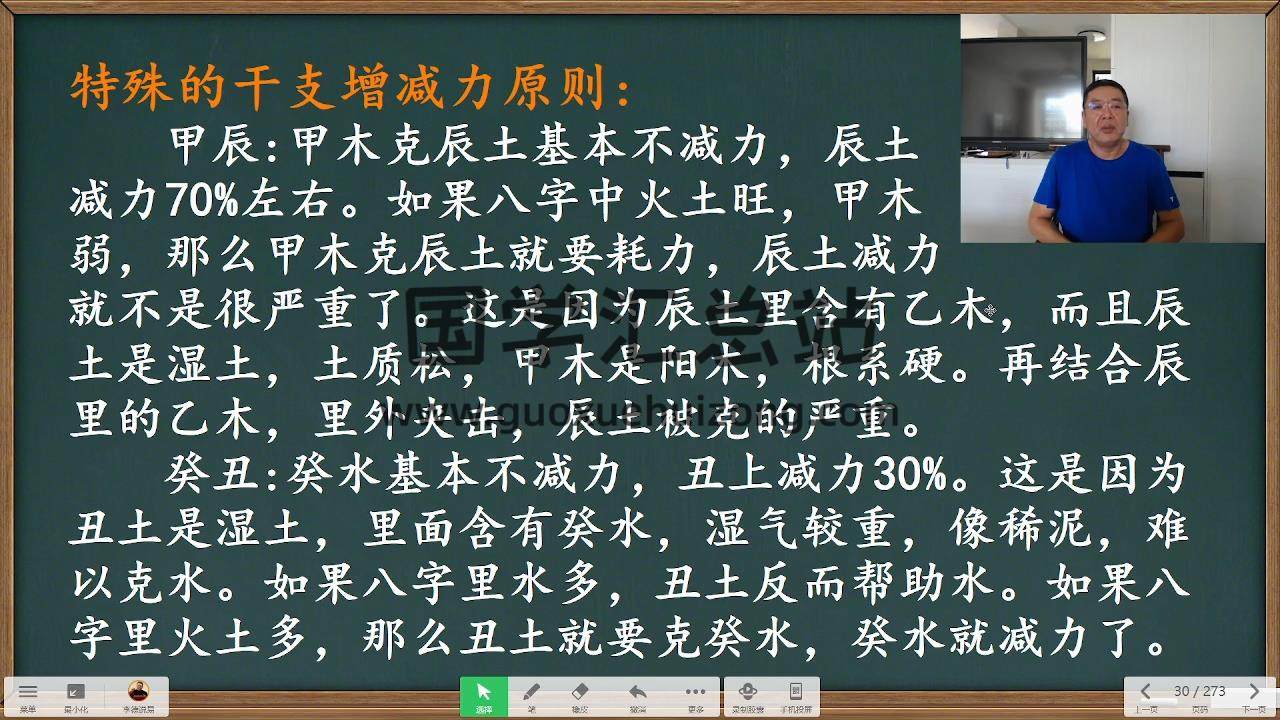 特殊的干支增减力原则：
甲辰：甲木克辰土基本不减力，辰土
减力70%左右。如果八字中火土旺，甲木
弱，那么甲木克辰土就要耗力，辰土减力
就不是很严重了。这是因为辰土里含有乙木，而且辰
土是湿土，土质松，甲木是阳木，根系硬。再结合辰
里的乙木，里外夹击，辰土被克的严重。
癸丑：癸水基本不减力，丑上减力30%。这是因为
丑土是湿土，里面含有癸水，湿气较重，像稀泥，难
以克水。如果八字里水多，丑土反而帮助水。如果八
字里火土多，那么丑土就要克癸水，癸水就减力了。
国学汇总站
www.guoxuehuizong.com
菜单 最小化 李德说易 选择 笔 橡皮 撤消 更多 录制胶囊 手机投屏 上一页 30 / 273 页码 下一页